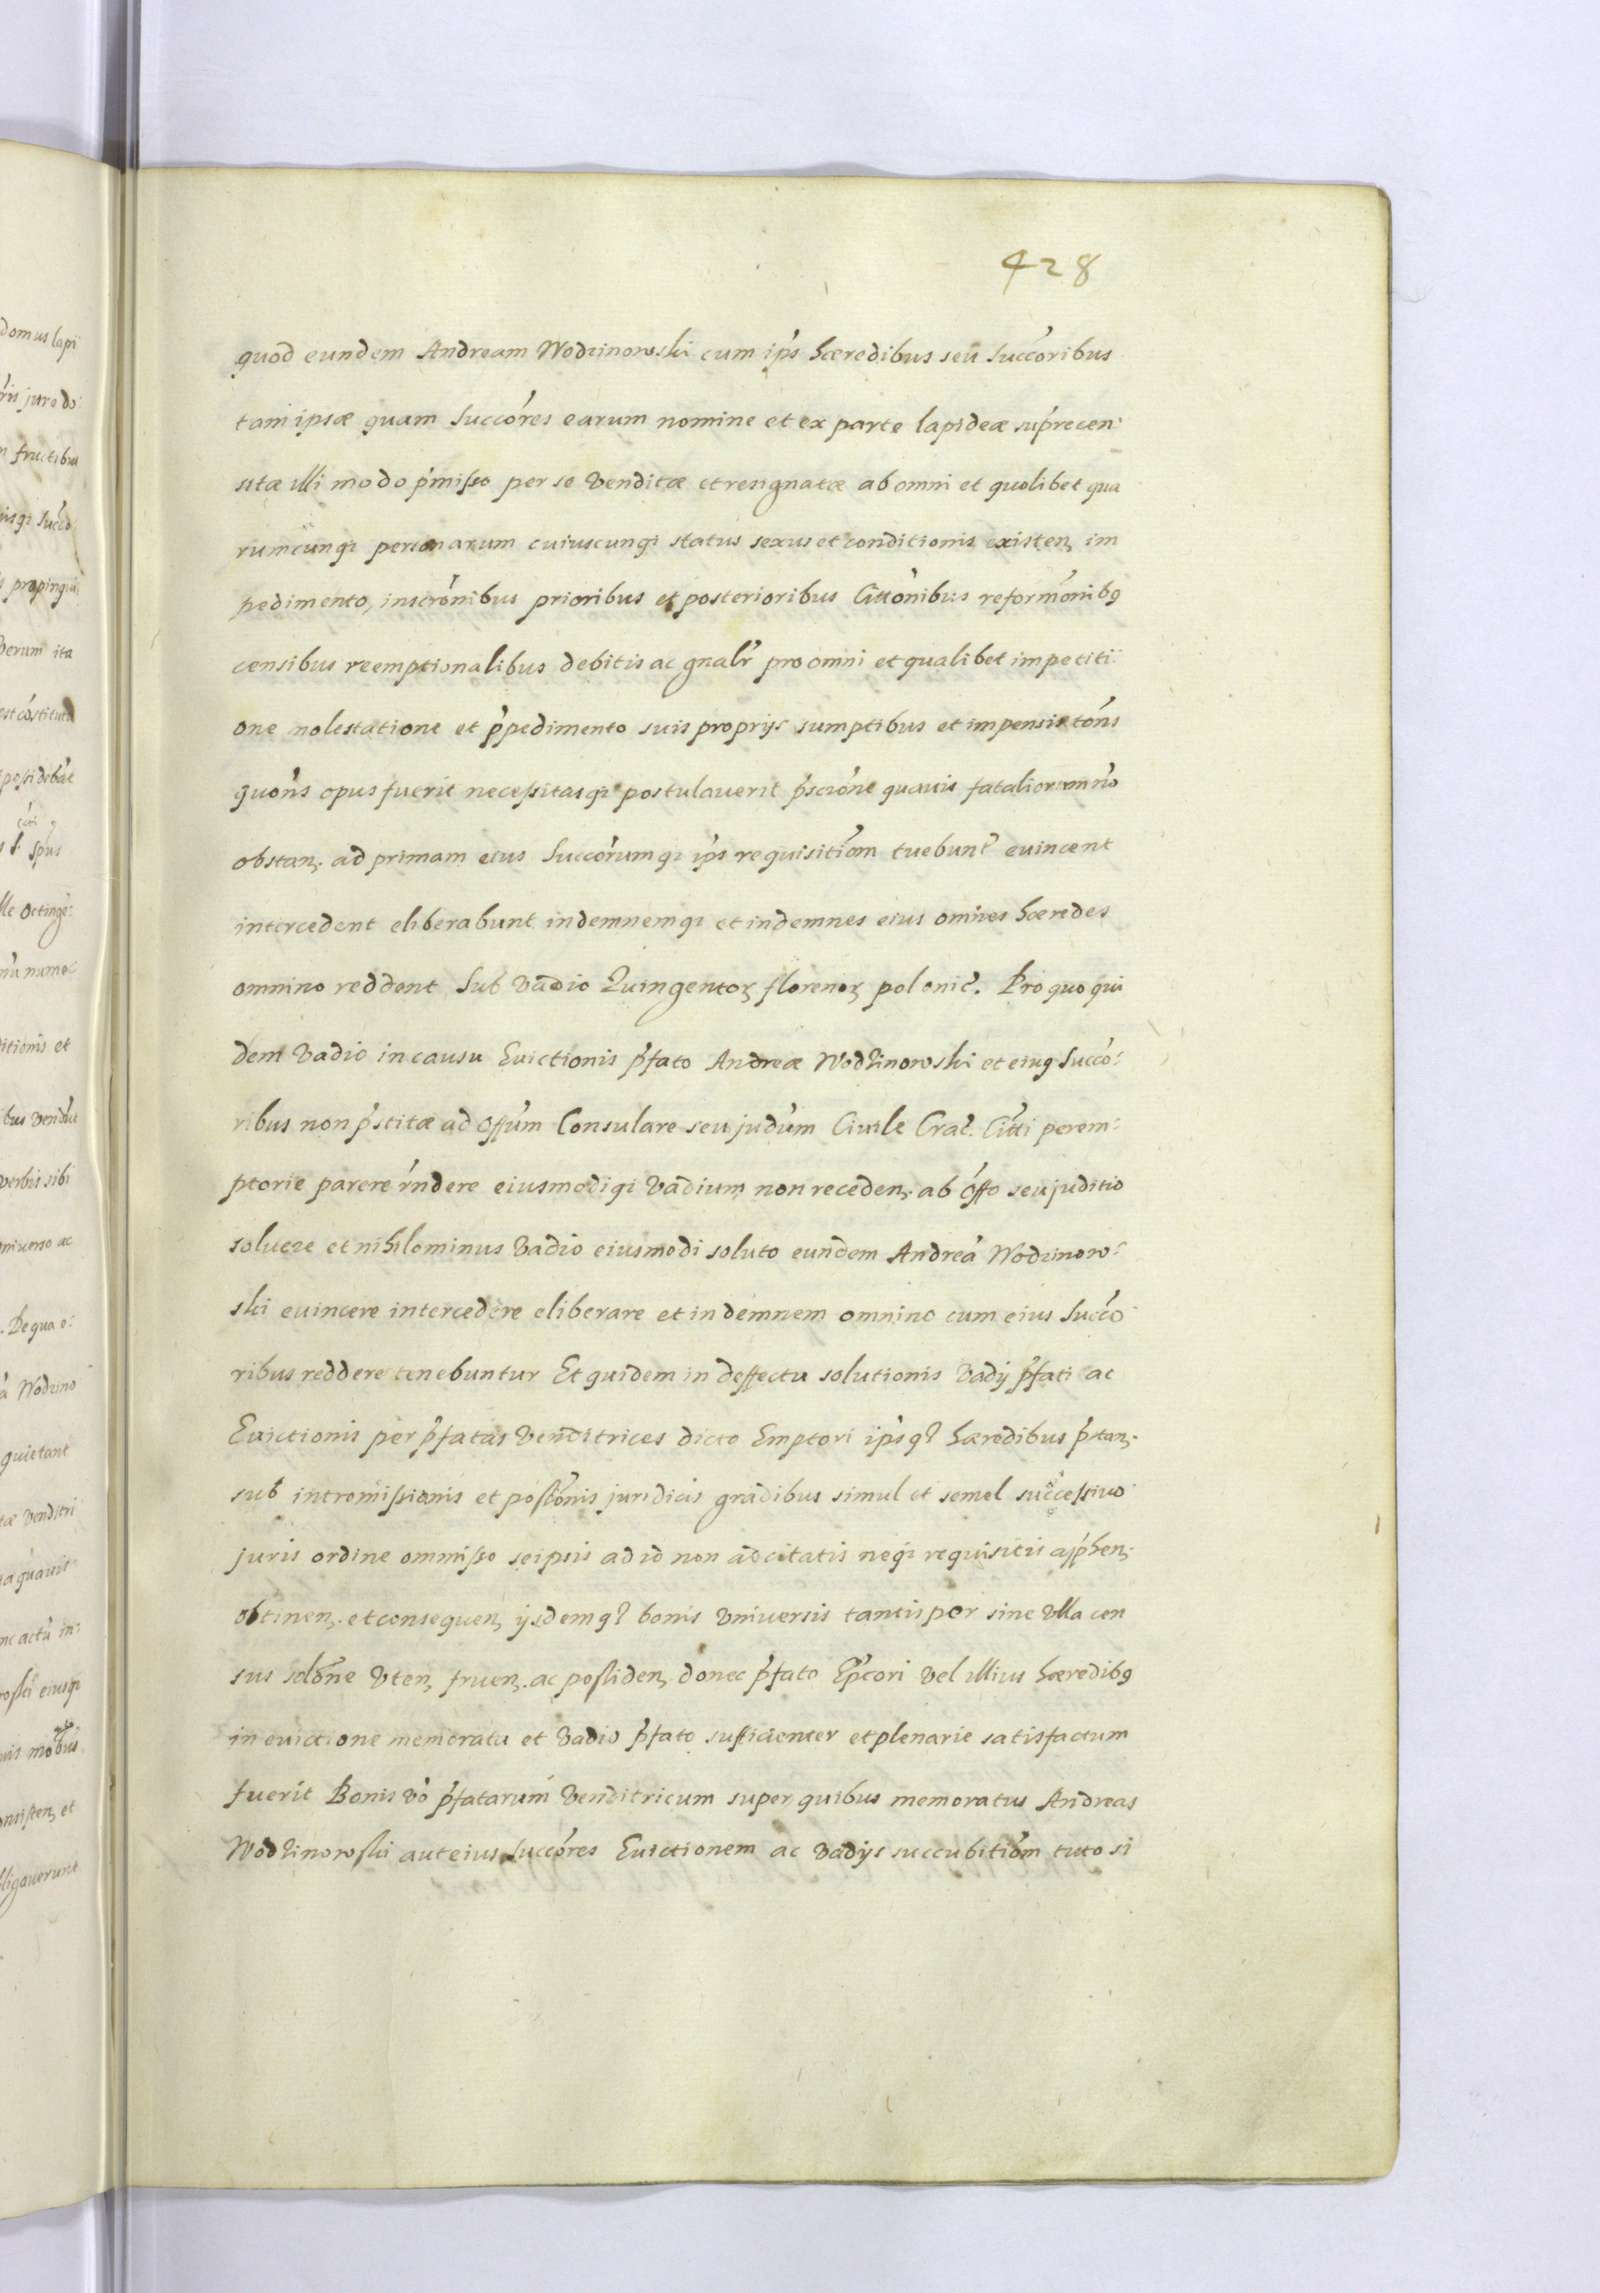 428
domus lapi
quod eundem Andream Wodzinowski cum ip̃s hæredibus seu Succ̃oribus
tam ipsæ quam Succ̃ores earum nomine et ex parte lapideæ sup̃recen:
sitæ illi modo p̃misso per se venditæ et resignatæ ab omni et quolibet qua
rumcunq; personarum cuiuscunq; status sexus et conditionis existen, im
pedimento, inscr̃onibus prioribus et posterioribus Citt̃onibus reform̃onibꝯ
censibus reemptionalibus debitis ac gñalr̃ pro omni et qualibet impetiti:
one molestatione et p̃pedimento suis proprijs sumptibus et impensis tõns
quõns opus fuerit necessitasq; postulaverit p̃scr̃one quavis fataliorum nõ
obstan, ad primam eius Succ̃orumq; ip̃s requisitiõm tuebunt̃ evincent
intercedent eliberabunt indemnemq; et indemnes eius omnes hæredes
omnino reddent Sub vadio Quingentoꝝ florenoꝝ polonic̃. Pro quo qui
dem vadio in causu Evictionis p̃fato Andreæ Wodzinowski et eiuꝯ Succo:
ribus non p̃stitæ ad Off̃um Consulare seu jud̃um Civile Crac̃. Citti perem:
ptorie parere r̃ndere eiusmodiq; vadium non receden, ab off̃o seu juditio
soluere et nihilominus vadio eiusmodi soluto eundem Andreã Wodzinow:
ski evincere intercedere eliberare et indemnem omnino cum eius Succo
ribus reddere tenebuntur Et quidem in deffectu solutionis vadij p̃fati ac
Evictionis per p̃fatas venditrices dicto Emptori ip̃sq; hæredibus p̃stan,
sub intromissionis et possėonis juridicis gradibus simul et semel successivo
juris ordine ommisso seipsis ad id non adcitatis neq; requisitis app̃hen,
obtinen, et consequen, ijsdemq; bonis Vniversis tantisper sine Vlla cen
sus sol̃one Vten, fruen, ac possiden, donec p̃fato Emp̃tori vel illius hæredibꝯ
in evictione memorata et vadio p̃fato sufficienter et plenarie satisfactum
fuerit Bonis vo p̃fatarum venditricum super quibus memoratus Andreas
Wodzinowski aut eius Succ̃ores Evictionem ac vadijs succubitiõm tuto si